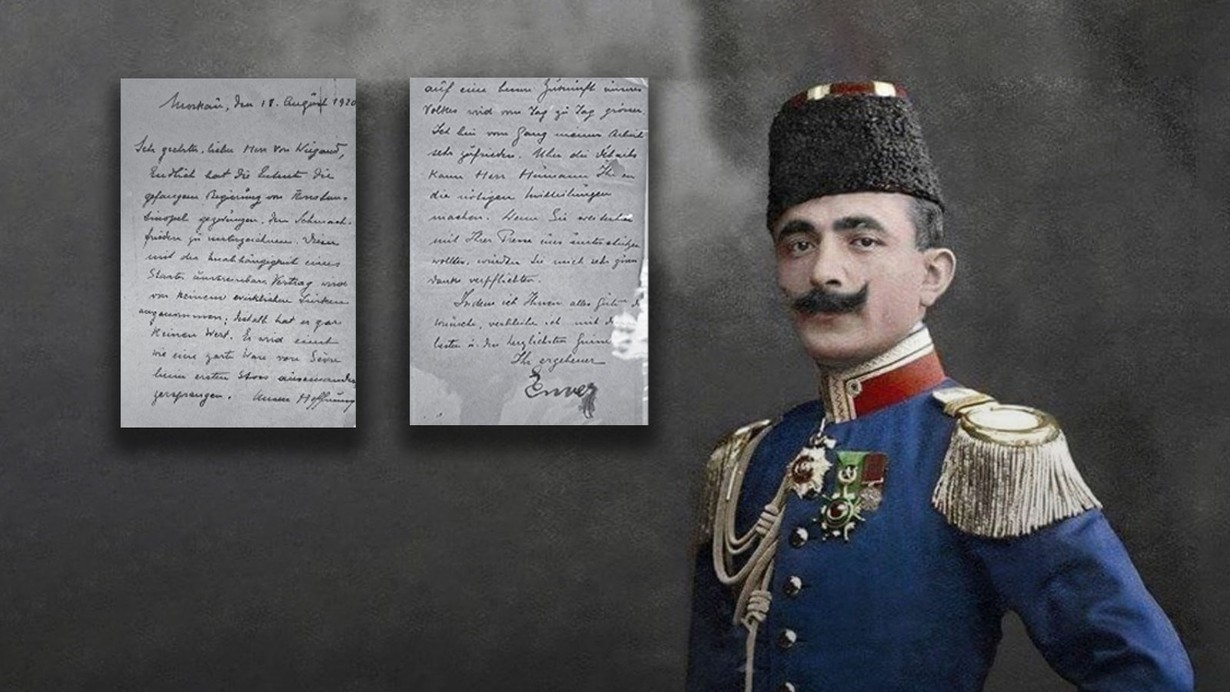 Moskau, den 18. August 1920
Sehr geehrter, lieber Herr von Wiegand,
Endlich hat die Entente die
gefangene Regierung von Konstan-
tinopel gezwungen, den Schmach-
frieden zu unterzeichnen. Dieser
mit der Unabhängigkeit eines
Staates unvereinbare Vertrag wird
von keinem wirklichen Türken
angenommen; deshalb hat er gar
keinen Wert. Es wird einst
wie eine zarte Ware von Sèvre
beim ersten Stoss auseinander
zerspringen. Unsere Hoffnung
auf eine bessere Zukunft unseres
Volkes wird von Tag zu Tag grösser.
Ich bin vom Gang meiner Arbeit
sehr zufrieden. Über die Details
kann Herr Humann Ihnen
die nötigen Mitteilungen
machen. Wenn Sie weiterhin
mit Ihrer Presse uns unterstützen
wollten, würden Sie mich sehr zum
danke verpflichten.
Indem ich Ihnen alles Gute
wünsche, verbleibe ich mit
besten u. den herzlichsten Grüssen
Ihr ergebener
Enver